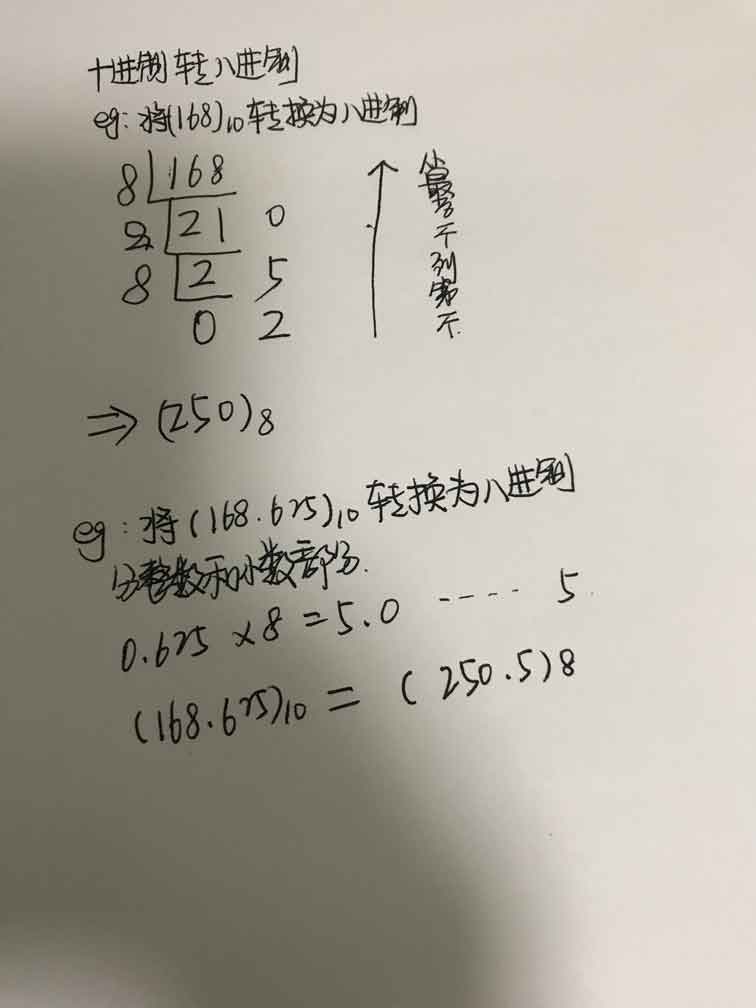 十进制转八进制
eg: 将(168)₁₀转换为八进制
8 168
8 21 0
8 2 5
0 2
⇒ (250)₈
eg: 将(168.625)₁₀转换为八进制
分整数和小数部分.
0.625 × 8 = 5.0 ---- 5
(168.625)₁₀ = (250.5)₈